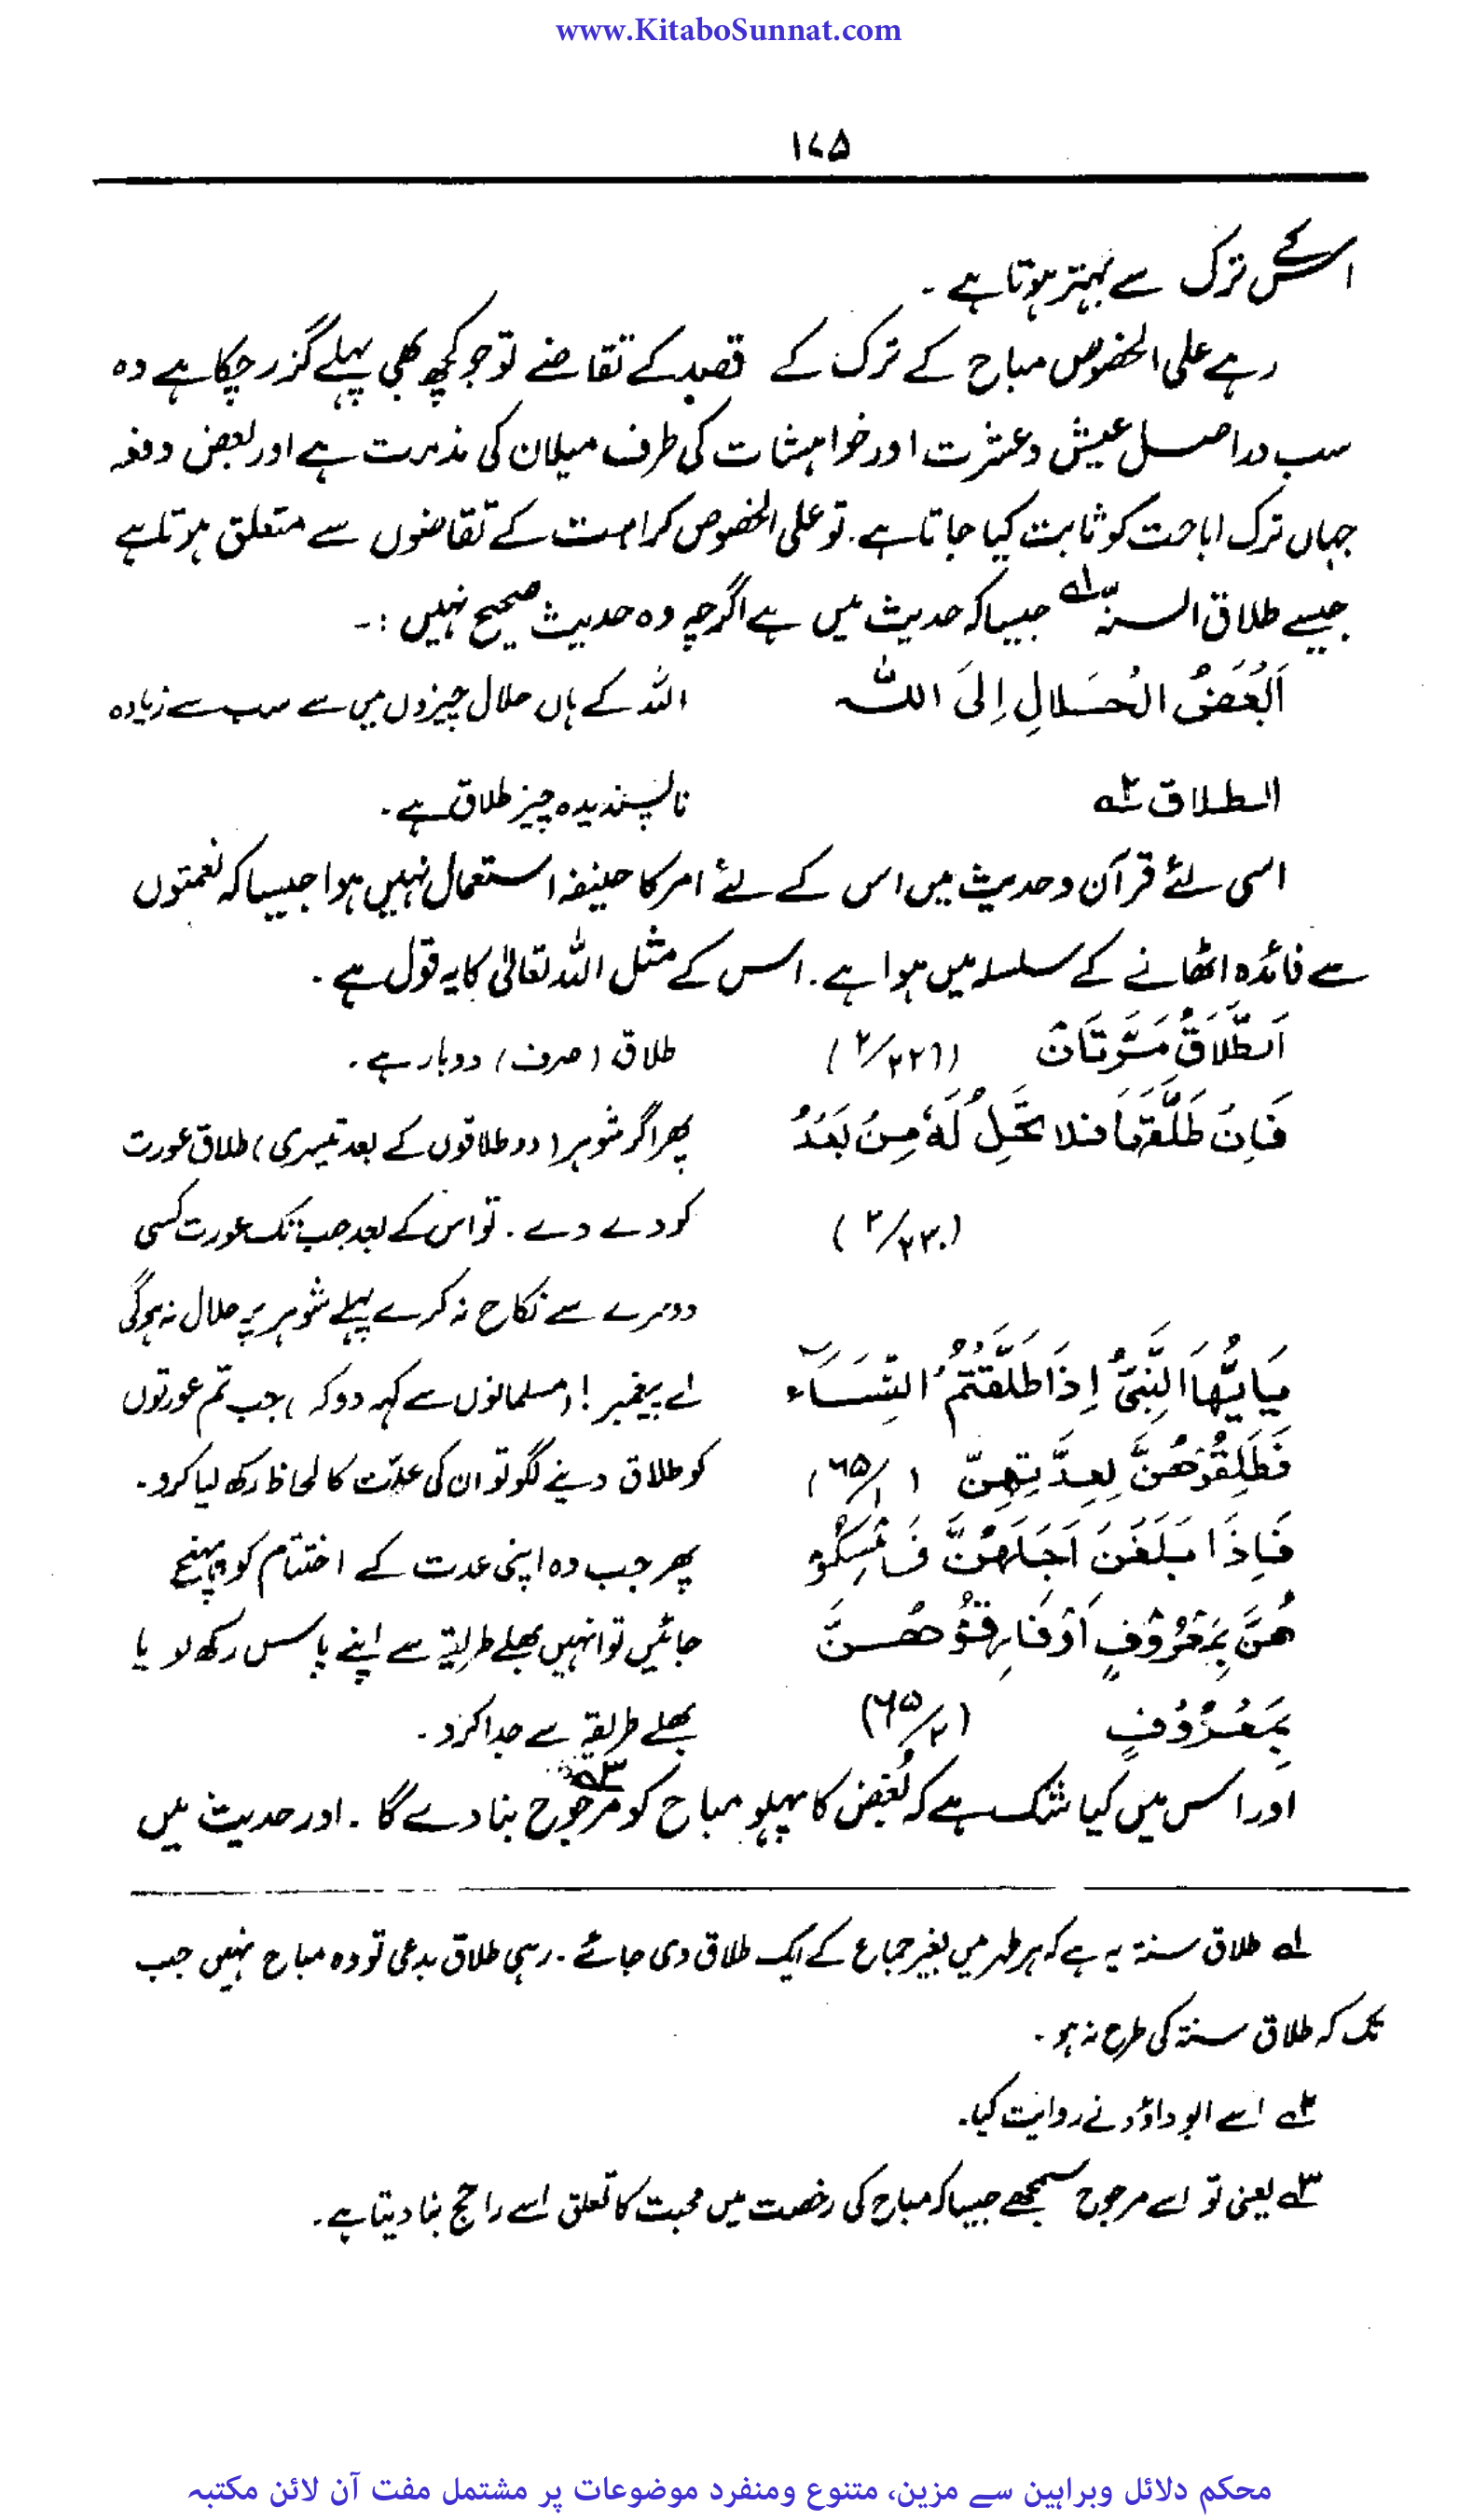 www.KitaboSunnat.com
۱۷۵
اس کے ترک سے بہتر ہوتا ہے ۔
رہے علی الخصوص مباح کے ترک کے قصد کے تقاضے تو جو کچھ بھی پہلے گزر چکا ہے وہ
سب دراصل عیش و عشرت اور خواہشات کی طرف میلان کی مذمت ہے اور بعض دفعہ
جہاں ترک اباحت کو ثابت کیا جاتا ہے ۔ تو علی الخصوص کراہت کے تقاضوں سے متعلق ہوتا ہے
جیسے طلاق السنۃ ۱؎ جیسا کہ حدیث میں ہے اگرچہ وہ حدیث صحیح نہیں :۔
اَبْغَضُ الْحَلَالِ اِلَی اللہ اللہ کے ہاں حلال چیزوں میں سے سب سے زیادہ
الطلاق ۲؎ ناپسندیدہ چیز طلاق ہے ۔
اسی لئے قرآن و حدیث میں اس کے لئے امر کا صیغہ استعمال نہیں ہوا جیسا کہ نعمتوں
سے فائدہ اٹھانے کے سلسلہ میں ہوا ہے ۔ اس کے مثل اللہ تعالیٰ کا یہ قول ہے ۔
اَلطَّلَاقُ مَرَّتَانِ (۲/۲۲۹) طلاق (صرف) دوبار ہے ۔
فَاِنْ طَلَّقَهَا فَلَا تَحِلُّ لَهٗ مِنْ بَعْدُ پھر اگر شوہر (دو طلاقوں کے بعد تیسری) طلاق عورت
(۲/۲۳۰) کو دے دے ۔ تو اس کے بعد جب تک عورت کسی
دوسرے سے نکاح نہ کرے پہلے شوہر پر حلال نہ ہوگی
يَا يُّهَا النَّبِيُّ اِذَا طَلَّقْتُمُ النِّسَآء اے پیغمبر! (مسلمانوں سے کہہ دو کہ) جب تم عورتوں
فَطَلِّقُوْهُنَّ لِعِدَّتِهِنَّ (۶۵/۱) کو طلاق دینے لگو تو ان کی عدّت کا لحاظ رکھ لیا کرو ۔
فَاِذَا بَلَغْنَ اَجَلَهُنَّ فَاَمْسِكُوْ پھر جب وہ اپنی عدت کے اختتام کو پہنچ
هُنَّ بِمَعْرُوْفٍ اَوْ فَارِقُوْ هُنَّ جائیں تو انہیں بھلے طریقے سے اپنے پاس رکھ لو یا
بِمَعْرُوْفٍ (۶۵/۲) بھلے طریقے سے جدا کرو ۔
اور اس میں کیا شک ہے کہ بُغض کا پہلو مباح کو مرجوح ۳؎ بنا دے گا ۔ اور حدیث میں
۱؎ طلاق سنۃ یہ ہے کہ ہر طہر میں بغیر جماع کے ایک طلاق دی جائے ۔ رہی طلاق بدعی تو وہ مباح نہیں جب
تک کہ طلاق سنۃ کی طرح نہ ہو ۔
۲؎ اسے ابو داؤد نے روایت کیا۔
۳؎ یعنی تو اسے مرجوح سمجھے جیسا کہ مباح کی رخصت میں محبت کا تعلق اسے راجح بنا دیتا ہے ۔
محکم دلائل وبراہین سے مزین، متنوع ومنفرد موضوعات پر مشتمل مفت آن لائن مکتبہ